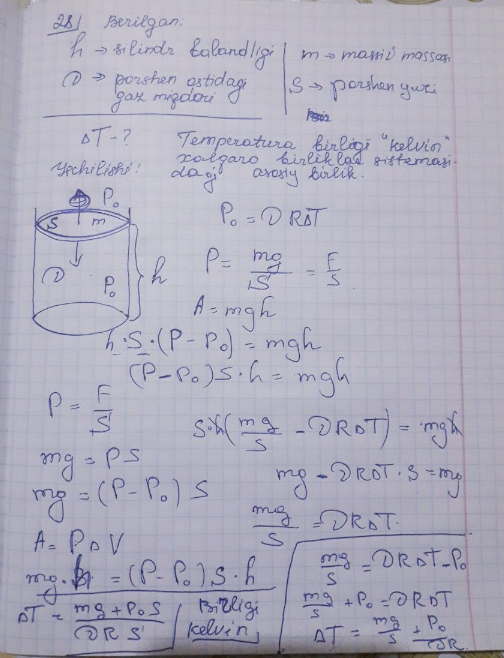 281 Berilgan:
h → silindr balandligi
ν → porshen ostidagi
gaz miqdori
m → massiv massasi
S → porshen yuzi
ΔT - ?
Temperatura birligi "kelvin"
xalqaro birliklar sistemasi-
dagi asosiy birlik.
Yechilishi:
P₀
S m
ν
P₀
h
P₀ = νRΔT
P = mg/S = F/S
A = mgh
h·S·(P - P₀) = mgh
(P - P₀)S·h = mgh
P = F/S
S·h(mg/S - νRΔT) = mgh
mg = PS
mg - νRΔT·S = mg
mg = (P - P₀)S
mg/S = νRΔT.
A = PΔV
mg·h = (P - P₀)S·h
ΔT = (mg + P₀S)/(νRS)
Birligi
kelvin
mg/S = νRΔT - P₀
mg/S + P₀ = νRΔT
ΔT = mg/S + P₀/νR